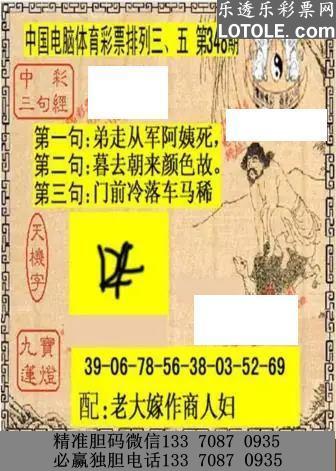 乐透乐彩票网
LOTOLE.COM
中国电脑体育彩票排列三、五 第348期
中彩
三句經
第一句:弟走从军阿姨死,
第二句:暮去朝来颜色故。
第三句:门前冷落车马稀
天機字
九寶
蓮燈
39-06-78-56-38-03-52-69
配:老大嫁作商人妇
精准胆码微信133 7087 0935
必赢独胆电话133 7087 0935